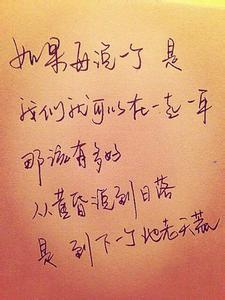 如果再说一个 是
我们就可以在一起一
那该有多好
从黄昏到日落
是 到下一个地老天荒